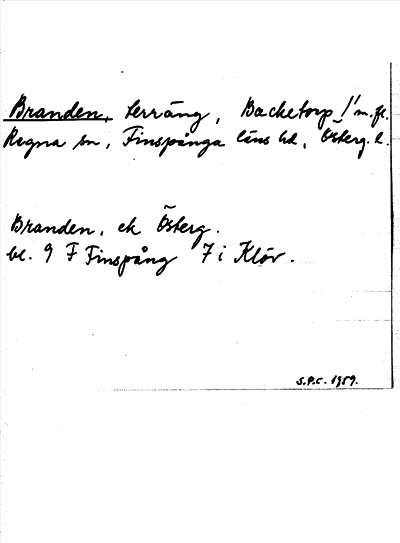 Branden, terräng, Backetorp 1/1 m.fl.
Regna sn, Finspånga läns hd, Österg. l.
Branden, ek Österg.
bl. 9 F Finspång 7 i Klöv.
S.P.C. 1959.